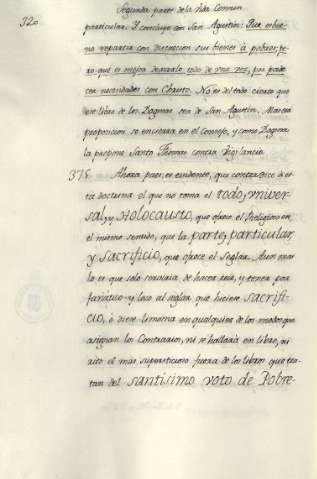 Segunda parte de la Vida Comun
320.
particular. Y concluye con San Agustin: Que es bue-
no repartir con discrecion sus bienes à pobres; pe-
ro que es mejor dexarlo todo de una vez, por pade-
cer necesidades con Christo. No es del todo cierto que
este libro de los Dogmas sea de San Agustin. Mas la
proposicion se encierra en el Consejo, y como Dogma
la propone Santo Thomas contra Vigilancio.
375. Ahora pues: es evidente, que contradice à es-
ta doctrina el que no toma el todo, univer-
sal, y Holocausto, que ofrece el Religioso en
el mismo sentido, que la parte, particular,
y Sacrificio, que ofrece el Seglar. Aun mas
lo es que solo serviria de hacer reir, y tener por
fanatico y loco al seglar que hiciere sacrifi-
cio, ò diese limosna en qualquiera de los modos que
asignan los Contrarios, ni se hallaria en libro, ni
aun el mas supersticioso fuera de los libros que tra-
tan del santísimo voto de Pobre-